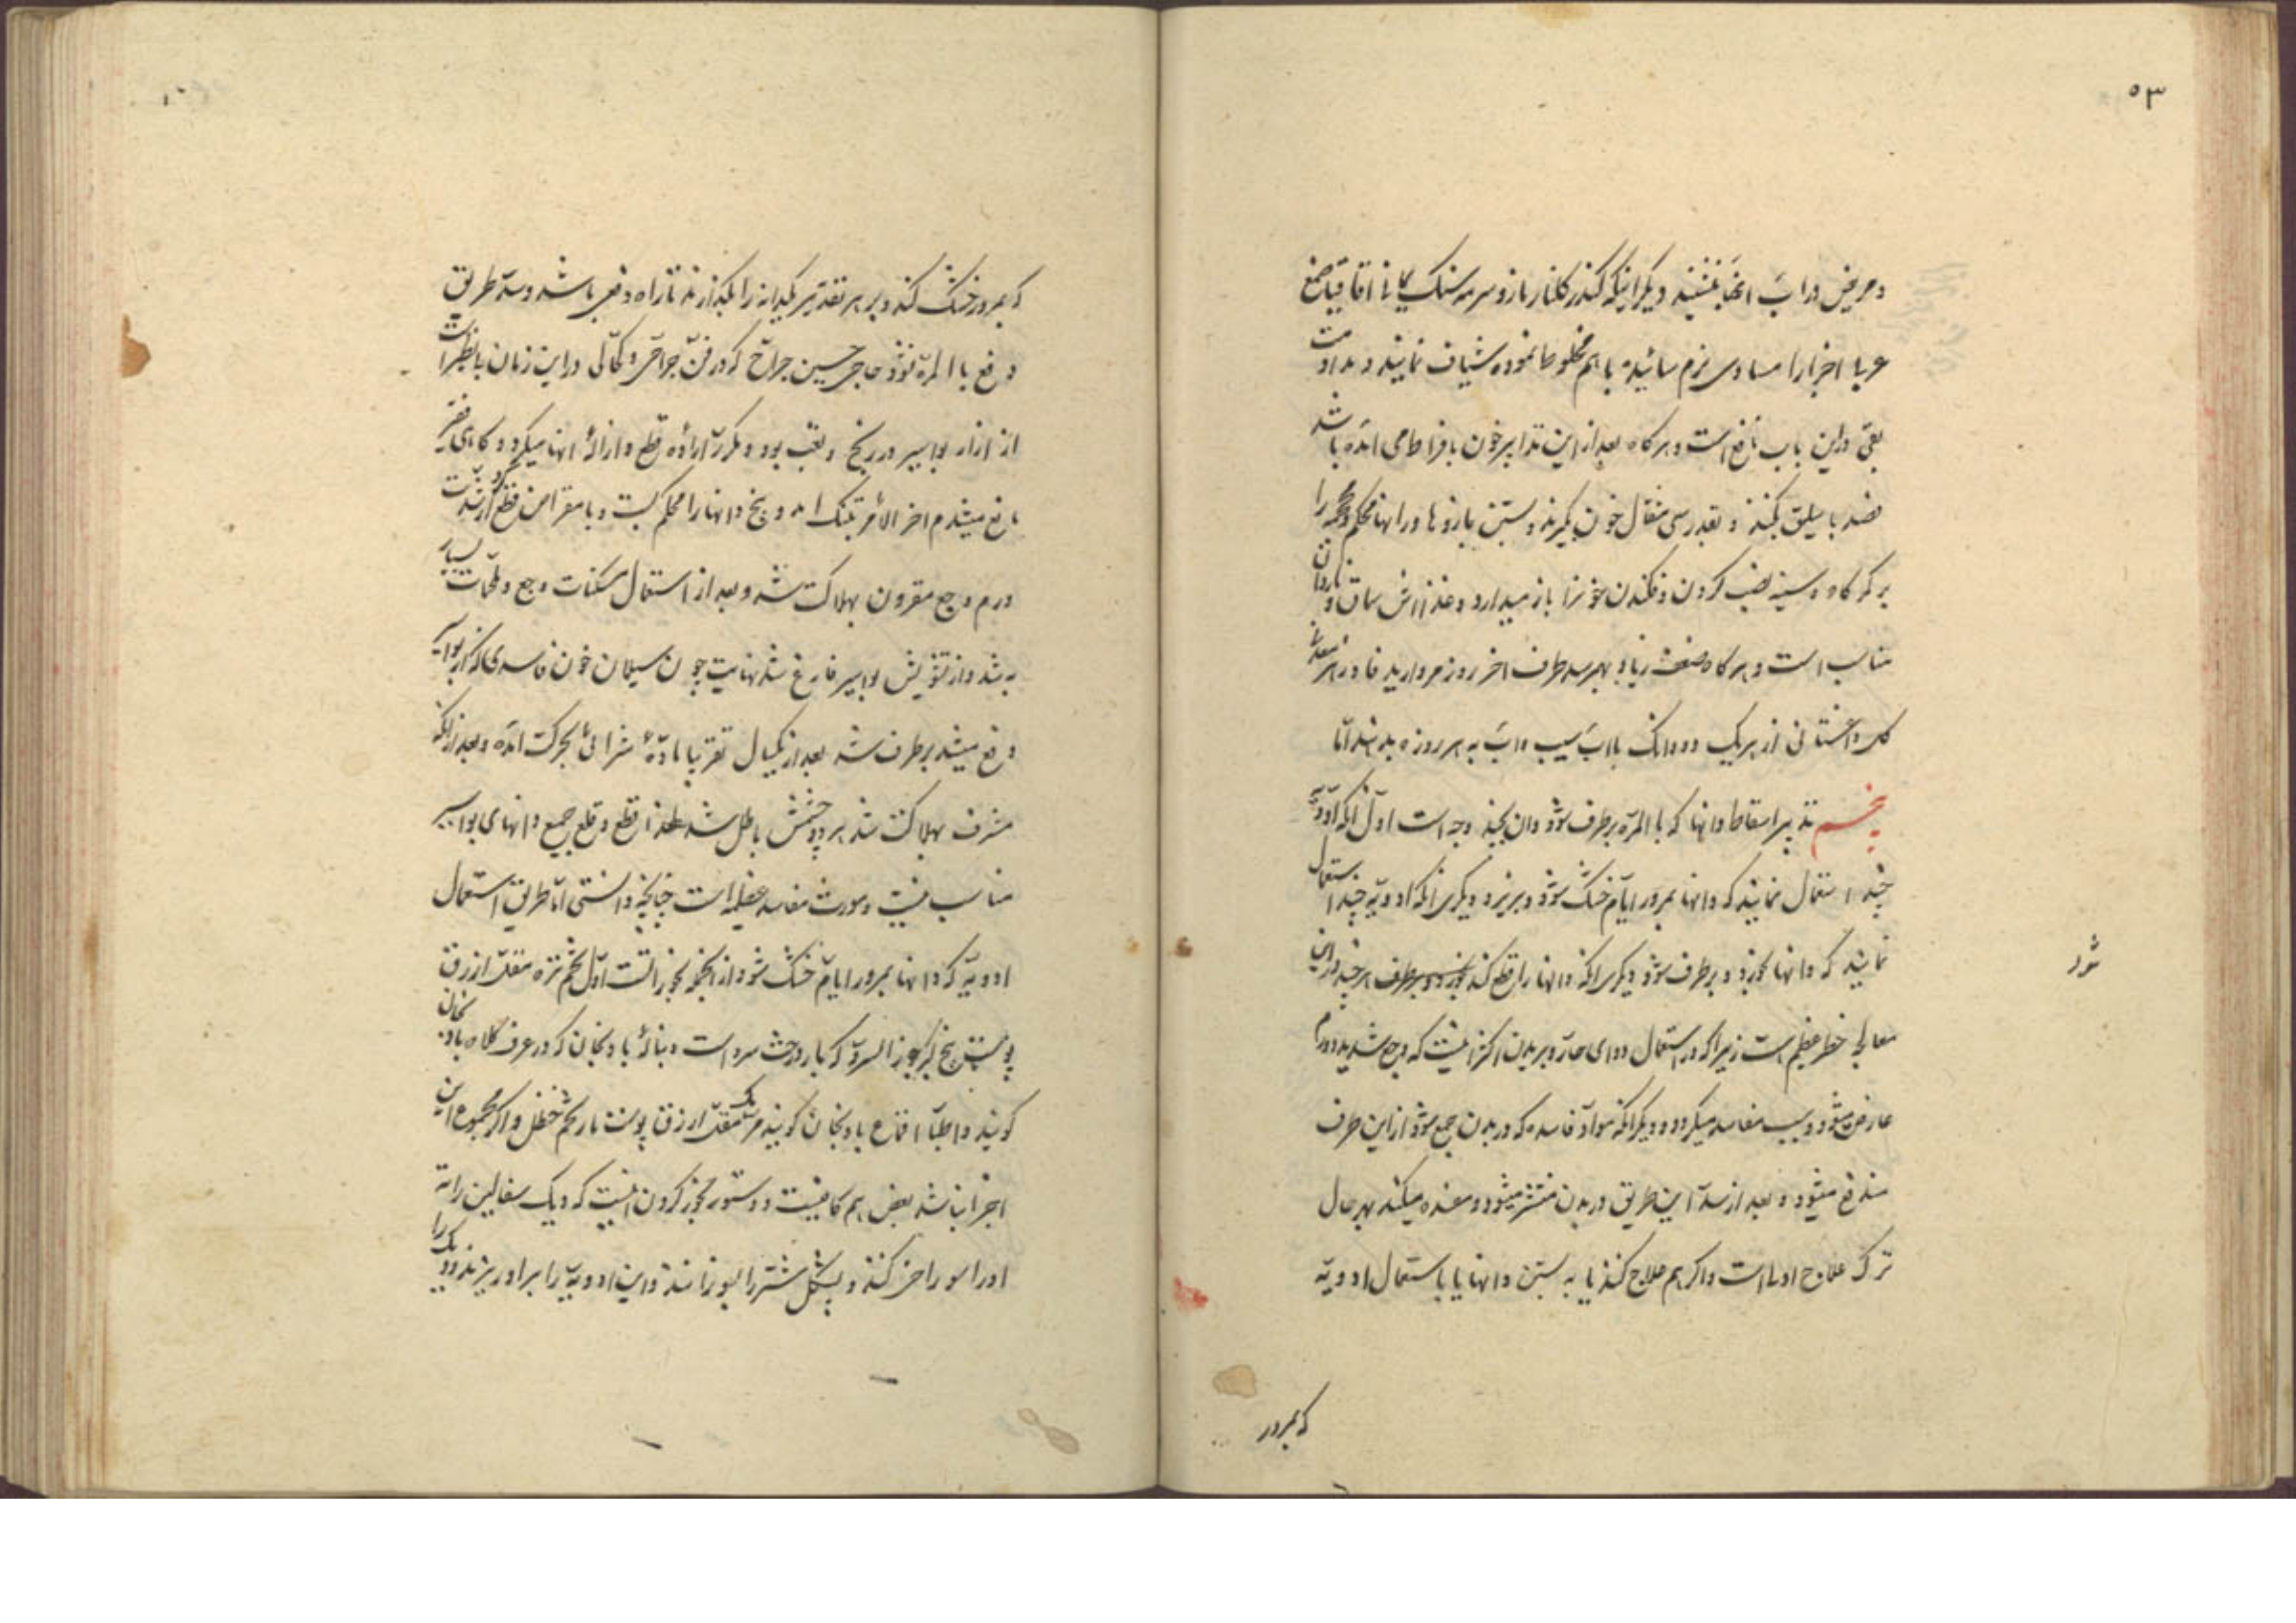 ۵۳
و مریض در آب آنها بنشیند دیگر اینکه کندر گلنار مازو سرمه سنگ کانی اقاقیا صمغ
عربی اجزا را مساوی نرم سائیده با هم مخلوط نموده شیاف نمایند و مداومت
بقی در این باب نافع است و هرگاه بعد از این تدابیر خون بافراط می آمده باشد
فصد باسلیق بکنند و بقدر سی مثقال خون بگیرند و بستن بازوها و رانها محکم و محجمه را
بر کمرگاه و سینه نصب کردن و فکندن خون را باز میدارد و غذا اش سماق و نار دان
مناسب است و هرگاه ضعف زیاد بهمرسد طرف آخر روز مروارید فادزهر معدنی
گل داغستانی از هر یک دو دانک با آب سیب و آب به هر روزه بدهند اما
پنجم تدبیر اسقاط دانها که بالمره برطرف شود و آن بچند وجه است اول آنکه ادویه
چند استعمال نمایند که دانها بمرور ایام خشک شود و بریزد دیگری آنکه ادویه چند استعمال
نمایند که دانها بخورد و برطرف شود دیگری آنکه دانها را قطع کند بخورد و برطرف هر چند در این
شود
معالجه خطر عظیم است زیرا که در استعمال دوای حاره و بریدن اکثر اینست که وجع شدید و ورم
عارض میشود و سبب مفاسد میگردد و دیگر آنکه مواد فاسده که در بدن جمع شود از این طرف
مندفع میشود و بعد از سد این طریق در بدن منتشر میشود و مفسده میکند بهر حال
ترک علاج اولی است و اگر هم علاج کنند یا به بستن دانها یا باستعمال ادویه
که بمرور
که بمرور خشک کند و بر هر تقدیر یکدانه را بگذارند تا راه دفعی باشد و سد طریق
دفع بالمره نشود حاجی حسین جراح که در فن جراحی و کحالی در این زمان بینظیر است
از آزار بواسیر در رنج و تعب بود و مکرر اراده قطع و ازاله آنها میکرد و گاهی فقیر
مانع میشدم آخر الامر بتنک آمد و بیخ دانها را محکم بست و با مقراض قطع کرد از شدت
ورم و وجع مقرون بهلاکت شد و بعد از استعمال مسکنات وجع و ملحمات بسیار
به شد و از تشویش بواسیر فارغ شد نهایت چون سیلان خون فاسدی که از بواسیر
دفع میشد برطرف شد بعد از یکسال تقریبا ماده شرائی بحرکت آمده و بعد از آنکه
مشرف بهلاکت شد هر دو چشمش باطل شد لهذا قطع و قلع جمیع دانهای بواسیر
مناسب نیست و مورث مفاسد عظیمه است چنانچه دانستی اما طریق استعمال
ادویه که دانها بمرور ایام خشک شود از آنجمله بخورانست اول تخم تره مقل ازرق
پوست بیخ کبر جوز السرو که بار درخت سرو است و بناله بادنجان که در عرف کلاه بادنجان
کویند و اطبا اقماع بادنجان کویند مر مکی مقل ازرق پوست مار تخم حنظل و اگر مجموع این
اجزا نباشد بعض هم کافیست و دستور بخور کردن اینست که دیک سفالین را ته
او را سوراخ کنند و پشکل شتر را بسوزانند و این ادویه را بر او ریزند و دیک را